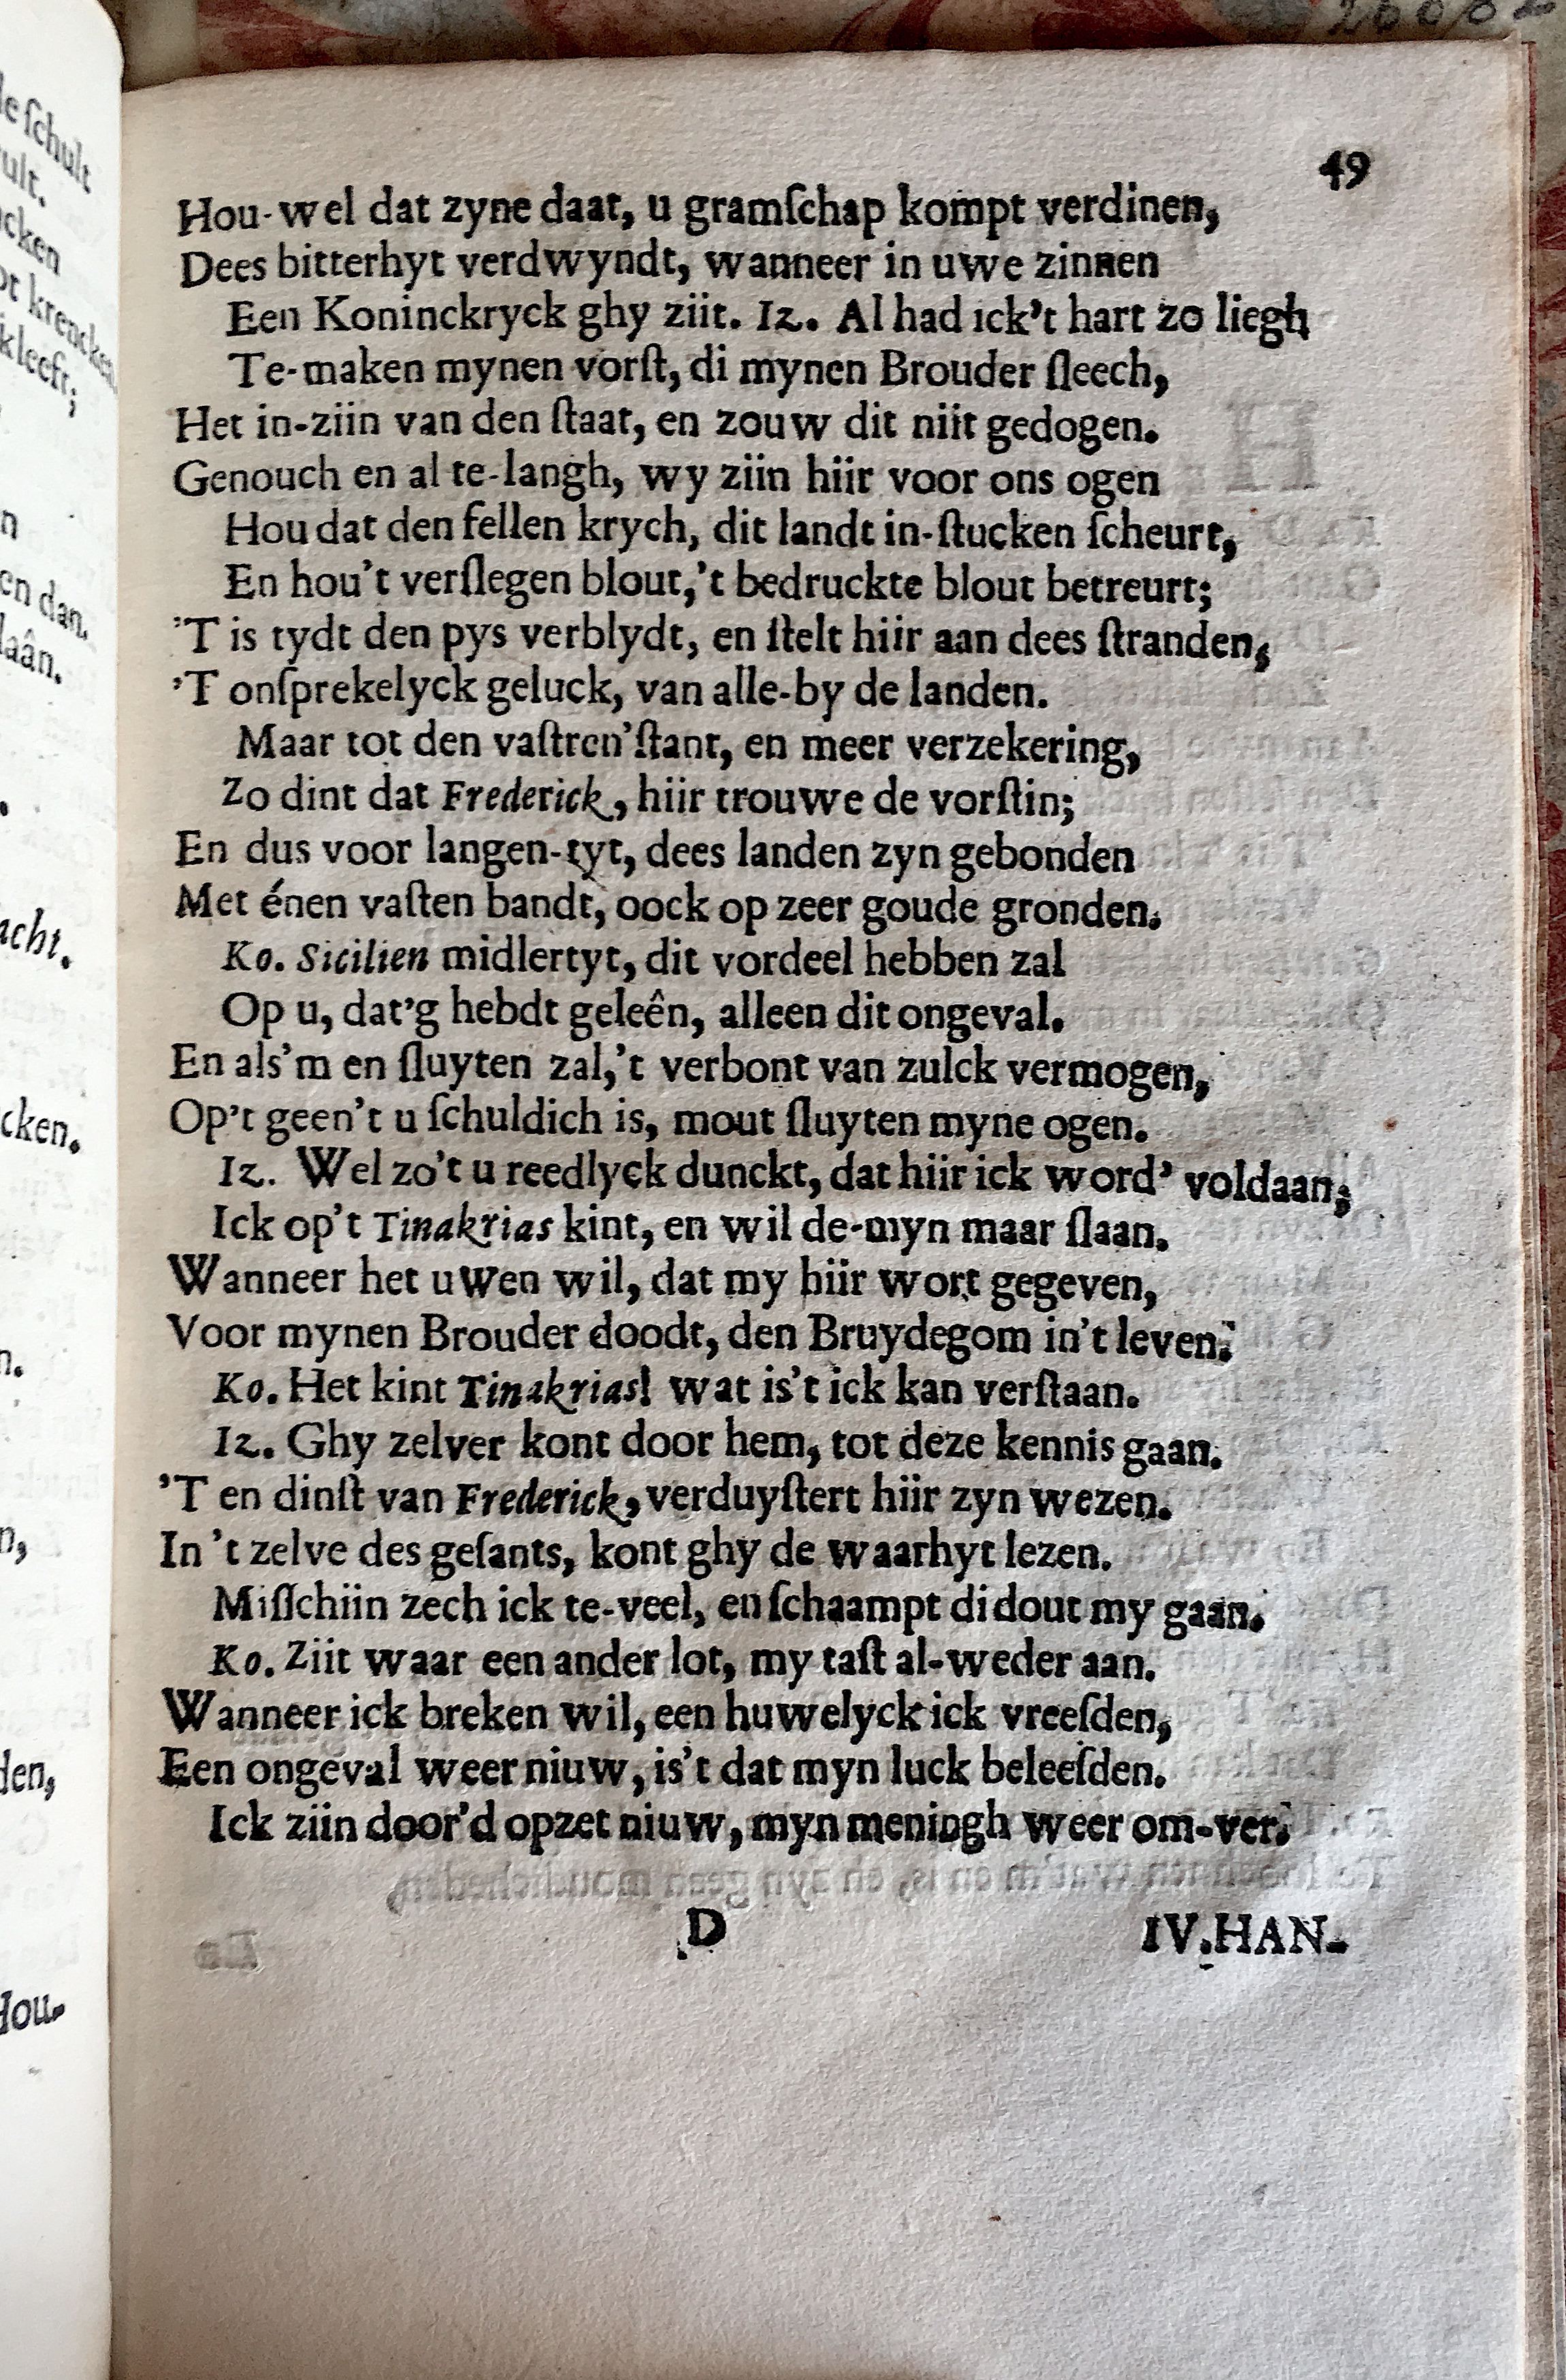 49
Hou-wel dat zyne daat, u gramſchap kompt verdinen,
Dees bitterhyt verdwyndt, wanneer in uwe zinnen
Een Koninckryck ghy ziit. Iz. Al had ick't hart zo liegh
Te-maken mynen vorſt, di mynen Brouder ſleech,
Het in-ziin van den ſtaat, en zouw dit niit gedogen.
Genouch en al te-langh, wy ziin hiir voor ons ogen
Hou dat den fellen krych, dit landt in-ſtucken ſcheurt,
En hou't verſlegen blout,'t bedruckte blout betreurt;
'T is tydt den pys verblydt, en ſtelt hiir aan dees ſtranden,
'T onſprekelyck geluck, van alle-by de landen.
Maar tot den vaſtren'ſtant, en meer verzekering,
Zo dint dat Frederick, hiir trouwe de vorſtin;
En dus voor langen-tyt, dees landen zyn gebonden
Met énen vaſten bandt, oock op zeer goude gronden.
Ko. Sicilien midlertyt, dit vordeel hebben zal
Op u, dat'g hebdt geleên, alleen dit ongeval.
En als'm en ſluyten zal,'t verbont van zulck vermogen,
Op't geen't u ſchuldich is, mout ſluyten myne ogen.
Iz. Wel zo't u reedlyck dunckt, dat hiir ick word' voldaan;
Ick op't Tinakrias kint, en wil de-myn maar ſlaan.
Wanneer het uwen wil, dat my hiir wort gegeven,
Voor mynen Brouder doodt, den Bruydegom in't leven.
Ko. Het kint Tinakrias! wat is't ick kan verſtaan.
Iz. Ghy zelver kont door hem, tot deze kennis gaan.
'T en dinſt van Frederick, verduyſtert hiir zyn wezen.
In 't zelve des geſants, kont ghy de waarhyt lezen.
Miſſchiin zech ick te-veel, en ſchaampt di dout my gaan.
Ko. Ziit waar een ander lot, my taſt al-weder aan.
Wanneer ick breken wil, een huwelyck ick vreeſden,
Een ongeval weer niuw, is't dat myn luck beleeſden.
Ick ziin door'd opzet niuw, myn meningh weer om-ver.
D IV. HAN-